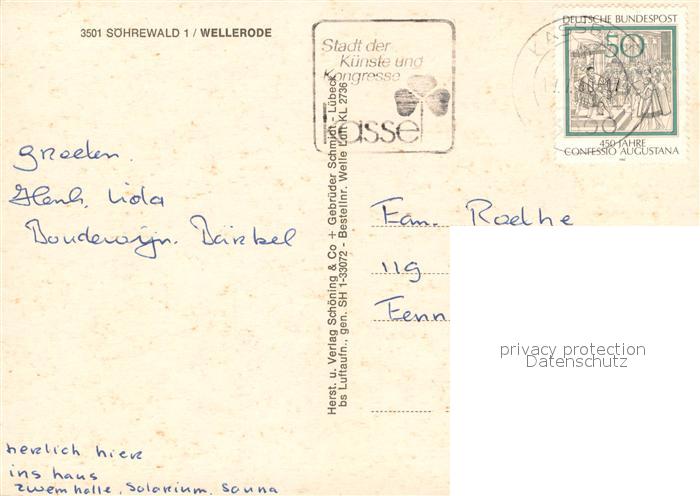 3501 SÖHREWALD 1 / WELLERODE
Stadt der
Künste und
Kongresse
Kassel
KASSEL
DEUTSCHE BUNDESPOST
50
450 JAHRE
CONFESSIO AUGUSTANA
Groeten.
Henk, Lida
Boudewijn. Bärbel
Herst. u. Verlag Schöning & Co + Gebrüder Schmidt - Lübeck
bs Luftaufn., gen. SH 1-33072 - Bestellnr. Welle Luft KL 2736
Fam. Raethe
119
Fenn
privacy protection
Datenschutz
herlich hier
ins haus
zwemhalle, Solarium, Sauna